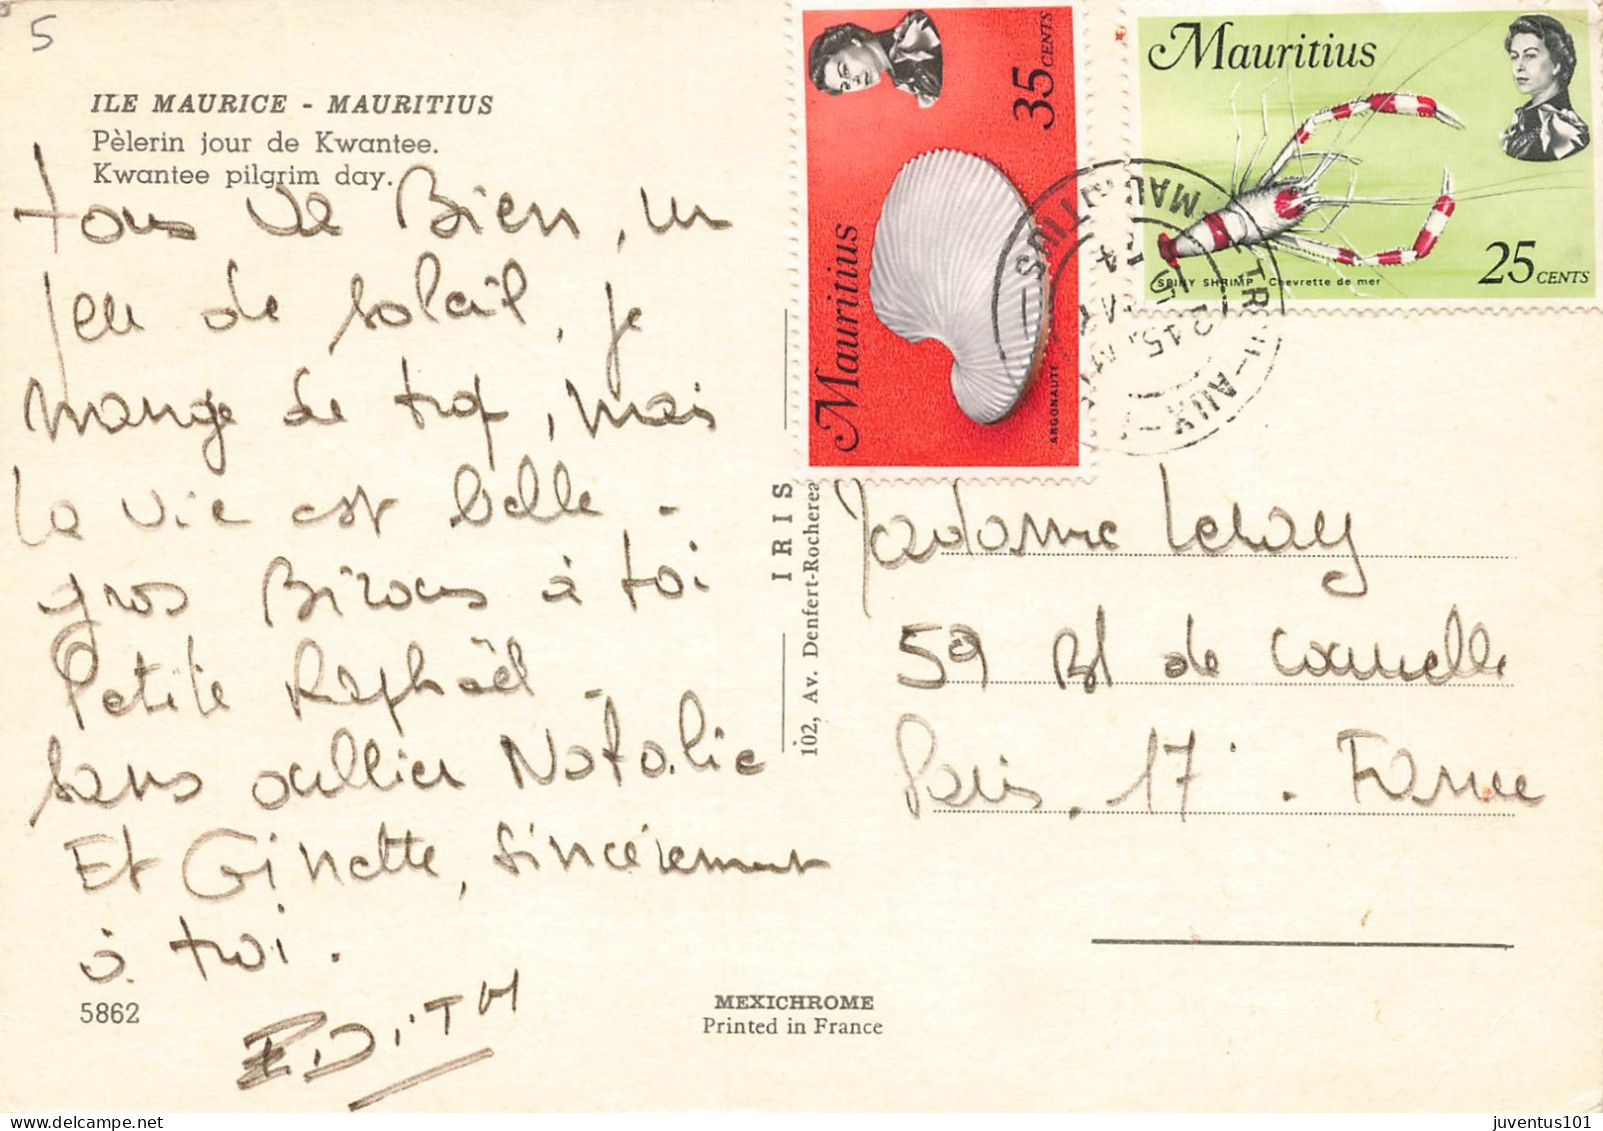 5
ILE MAURICE - MAURITIUS
Pèlerin jour de Kwantee.
Kwantee pilgrim day.
tous va Bien, un
peu de soleil, je
mange de trop, mais
la vie est belle -
gros Bizous à toi
Petite Raphaël -
sans oublier Natalie
Et Ginette, sincérement
à toi.
EDITH
5862
MEXICHROME
Printed in France
IRIS
102, Av. Denfert-Rocherea
35 CENTS
Mauritius
ARGONAUTE
Mauritius
25 CENTS
SPINY SHRIMP Chevrette de mer
MAURITIUS
Madame Leray
59 Bd de Courcelle
Paris. 17. France
juventus101